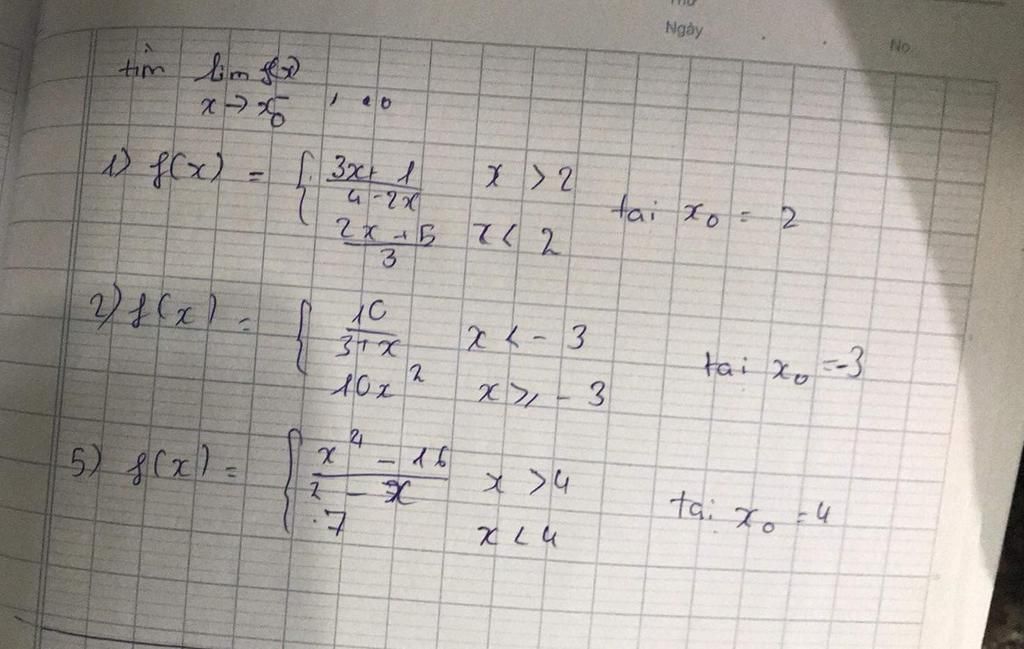 Ngày . . No
tìm lim f(x)
x → x₀⁻
1) f(x) = { (3x + 1)/(4 - 2x) x > 2
(2x + 5)/3 x < 2 tai x₀ = 2
2) f(x) = { 10/(3 + x) x < - 3
10x² x ⩾ - 3 tai x₀ = -3
5) f(x) = { (x² - 16)/(2 - x) x > 4
7 x < 4 tai x₀ = 4